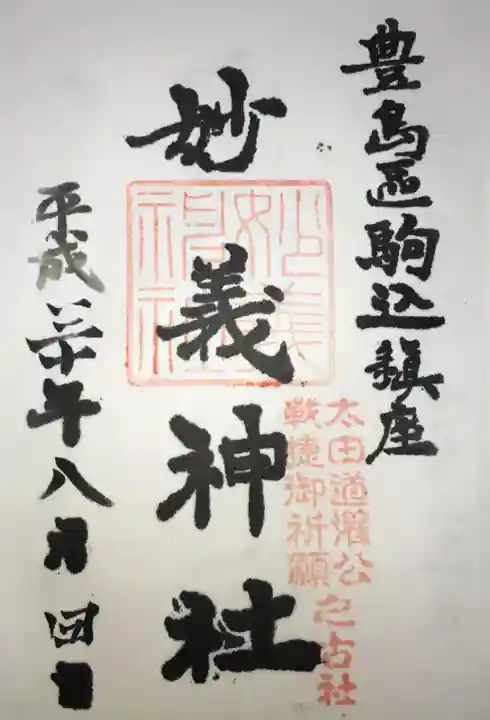 豊島區駒込鎮座
太田道灌公
戦捷御祈願
之古社
妙義神社
妙義神社
平成三十年八月四日